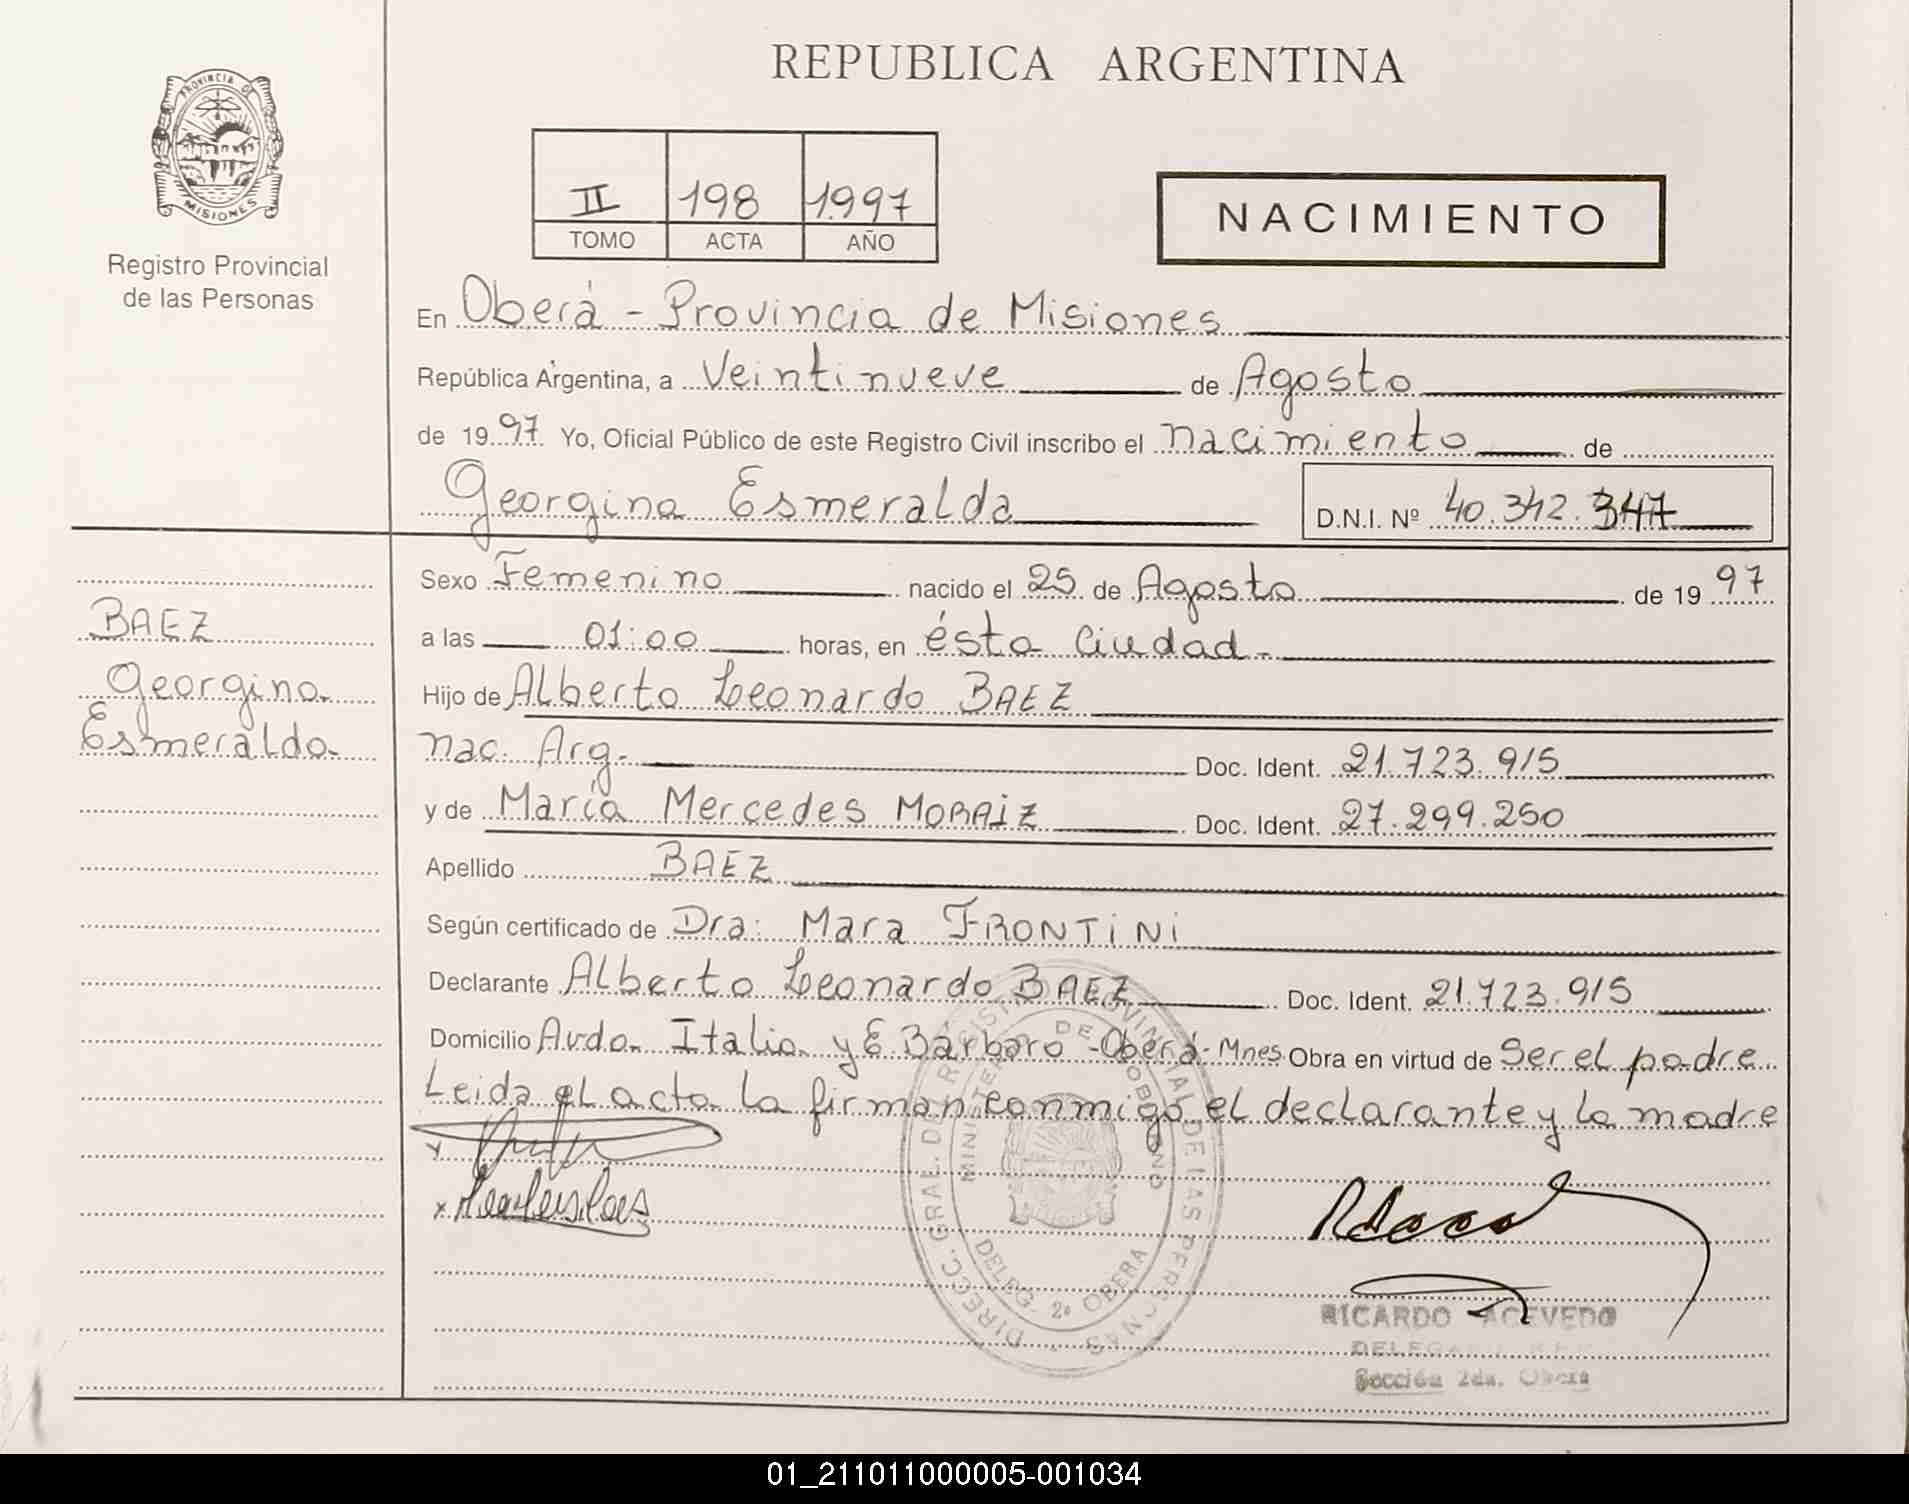 REPUBLICA ARGENTINA
PROVINCIA DE
MISIONES
Registro Provincial
de las Personas
II 198 1997
TOMO ACTA AÑO
NACIMIENTO
En Oberá - Provincia de Misiones
República Argentina, a Veintinueve de Agosto
de 1997 Yo, Oficial Público de este Registro Civil inscribo el nacimiento de
Georgina Esmeralda D.N.I. Nº 40.342.347
Sexo Femenino nacido el 25 de Agosto de 1997
a las 01:00 horas, en ésta Ciudad.-
Hijo de Alberto Leonardo BAEZ
nac. Arg. Doc. Ident. 21.723.915
y de María Mercedes MORAIZ Doc. Ident. 27.299.250
Apellido BAEZ
Según certificado de Dra: Mara FRONTINI
Declarante Alberto Leonardo BAEZ Doc. Ident. 21.723.915
Domicilio Avda. Italia y E Barbaro - Oberá - Mnes. Obra en virtud de Ser el padre
Leida el acta la firman conmigo el declarante y la madre
BAEZ
Georgina
Esmeralda
DIRECC. GRAL. DEL REGISTRO PROVINCIAL DE LAS PERSONAS
MINISTERIO DE GOBIERNO
DELEG. 2ª OBERA
RICARDO ACEVEDO
Sección 2da. Oberá
01_211011000005-001034